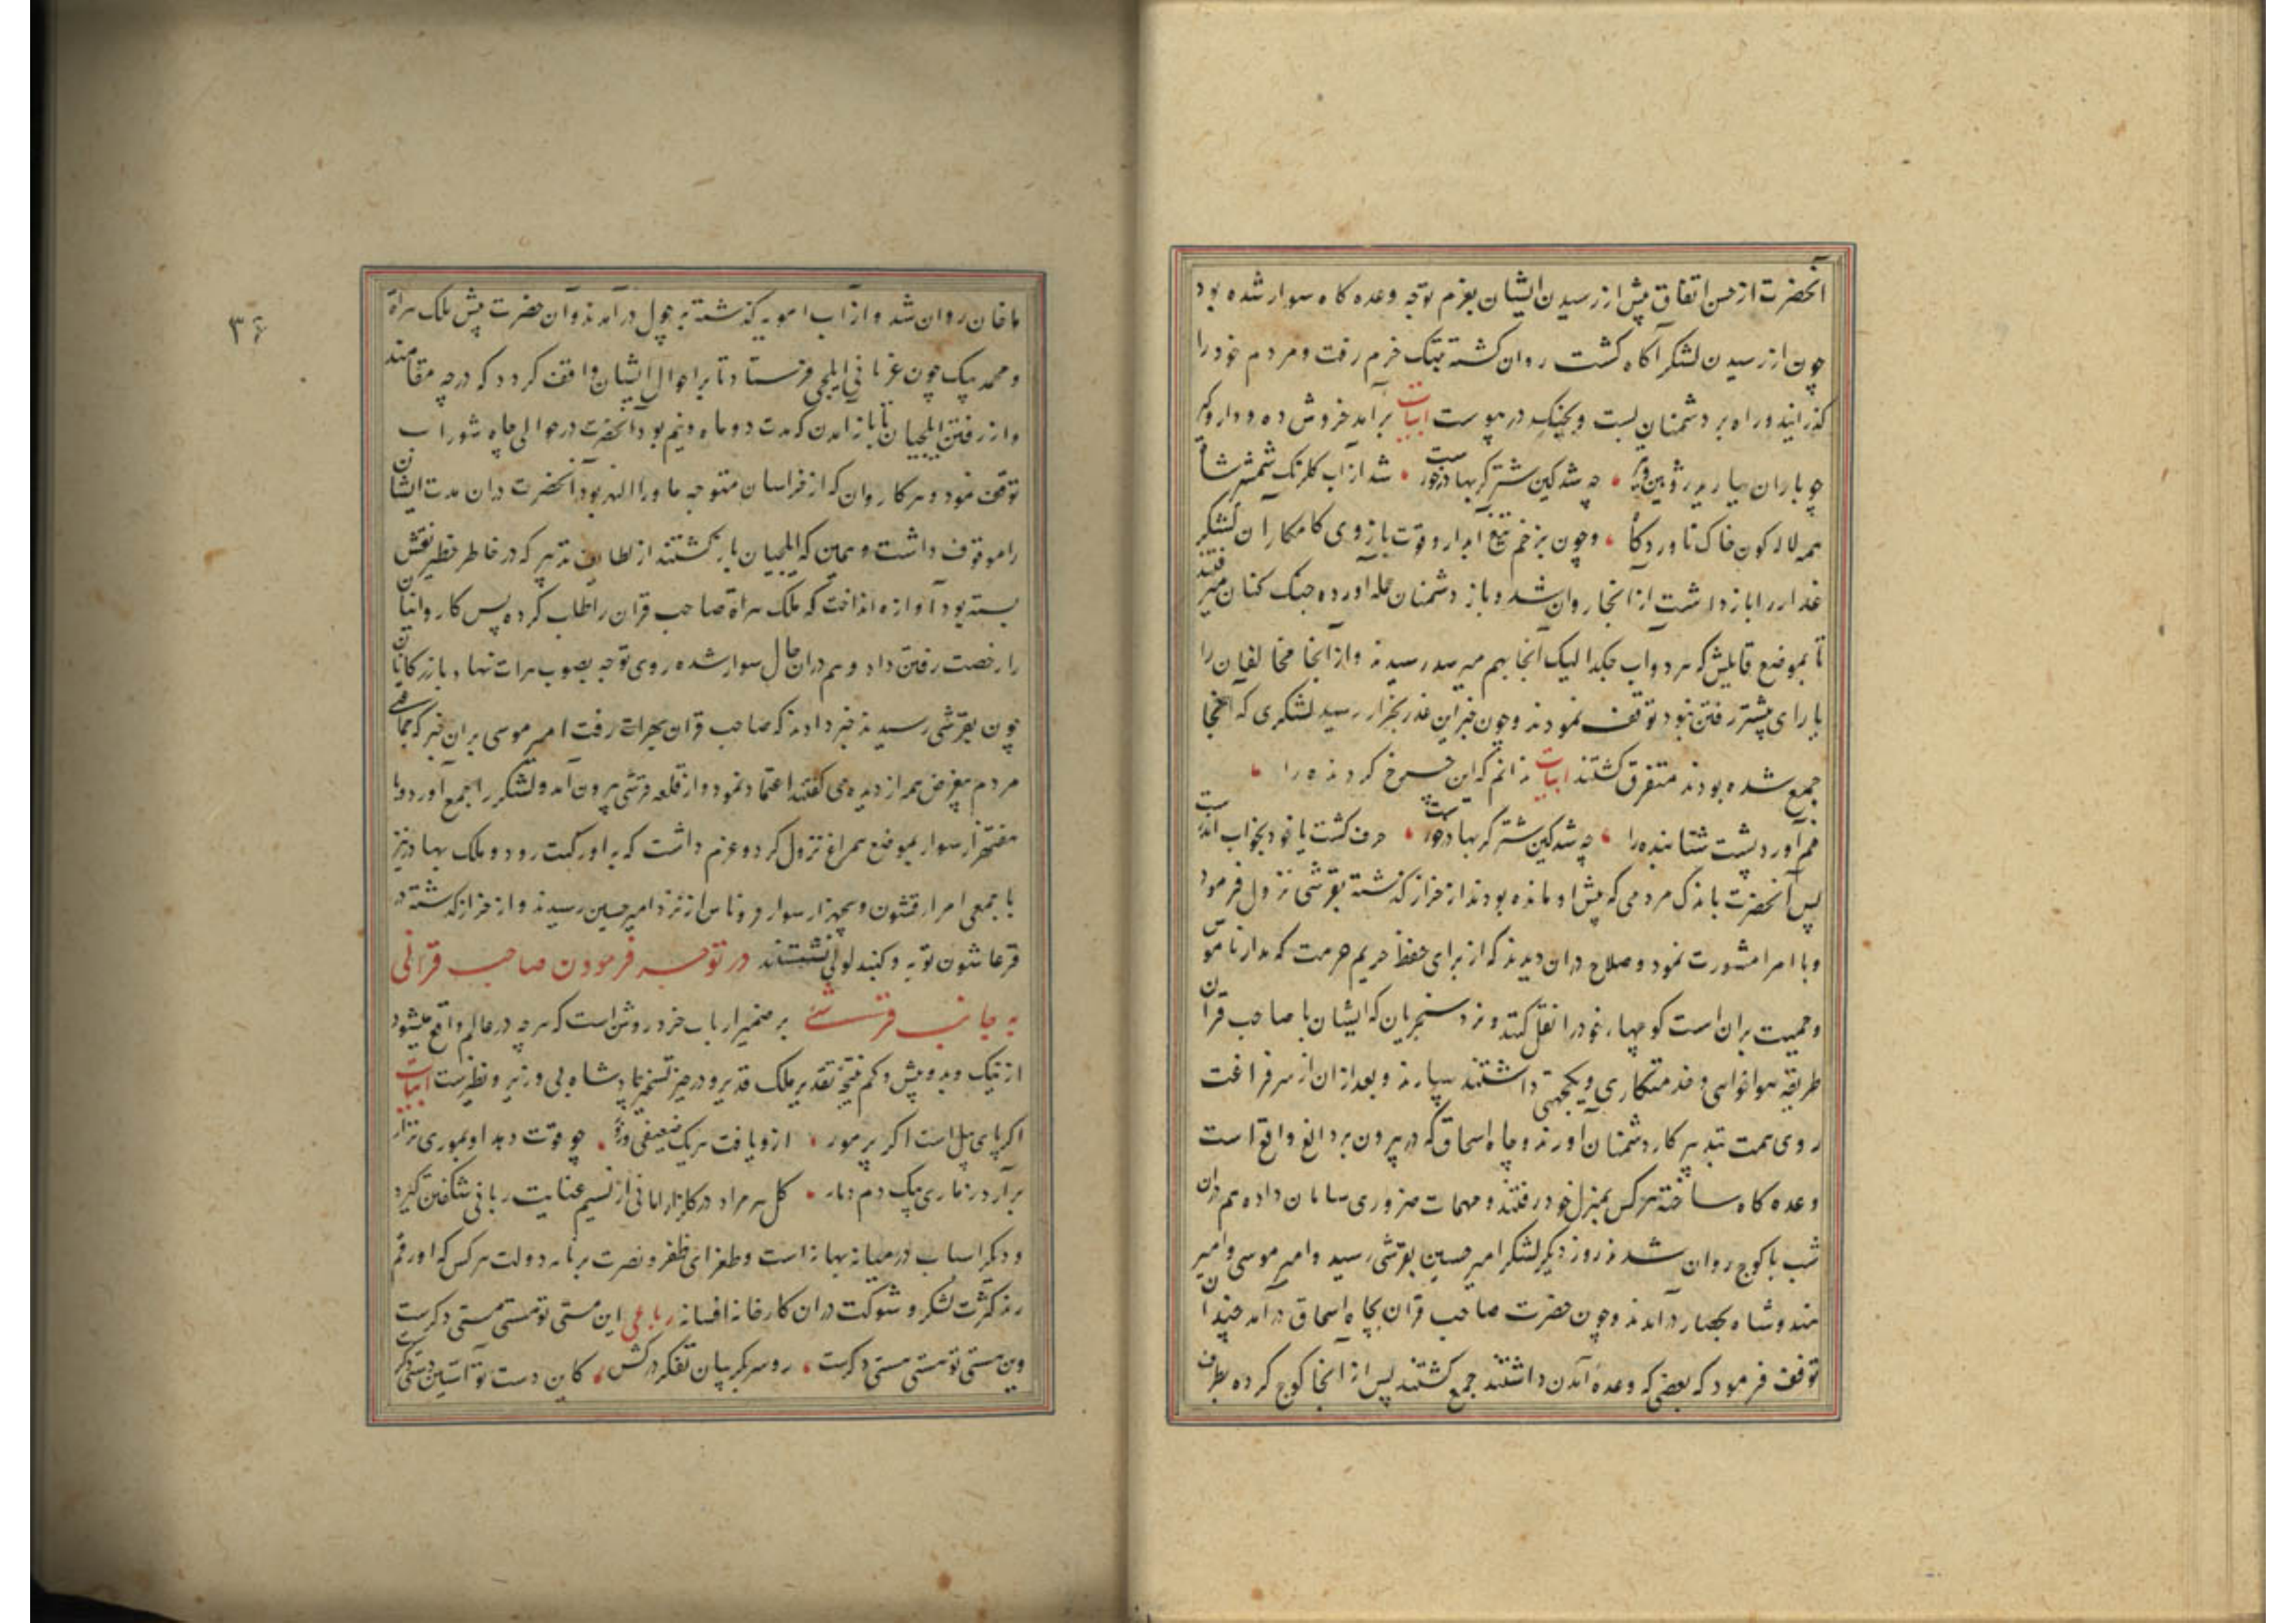 آنحضرت از حسن اتفاق پیش از رسیدن ایشان بعزم توجه وعده کاه سوار شده بود
چون از رسیدن لشکر آکاه کشت روان کشته بتنک حرم رفت و مردم خود را
کذرانید و راه بر دشمنان بست و بجنک در پیوست ابیات برآمد خروش ده و دار و کیر
چو باران ببارید روبین تیر چه شد کین شتر کربها درخورست شد از آب کلرنک شمشیرشان
همه لاله کون خاک ناوردکا و چون بزخم تیغ آبدار و قوت بازوی کامکار آن لشکر
غدار را باز داشت از انجا روان شد و باز دشمنان حمله آورده جنک کنان میرفتند
تا بموضع قایلش که هر دو آب جکدالیک آنجا بهم میرسد رسیدند و از آنجا مخالفان را
یارای پیشتر رفتن نبود توقف نمودند و چون خبر این غدر بخزار رسید لشکری که آنجا
جمع شده بودند متفرق کشتند ابیات ندانم که این چرخ کردنده را
خم آورد پشت شتابنده را چه شد کین شتر کربها درخورست خرف کشت یا خود بخواب اندرست
پس آنحضرت باندک مردمی که پیش او مانده بودند از خزار کذشته بقرشی نزول فرمود
و با امرا مشورت نمود و صلاح دران دیدند که از برای حفظ حریم حرمت که مدار ناموس
و حمیت بران است کوچهاء خود را نقل کنند و نزد سنجریان که ایشان با صاحب قران
طریقه هواخواهی و خدمتکاری و یکجهتی داشتند سپارند و بعد ازان از سر فراغت
روی همت بتدبیر کار دشمنان آورند و چاه اسحاق که در بیرون بردالغ واقع است
وعده کاه ساخته هرکس بمنزل خود رفتند و مهمات ضروری سامان داده هم دران
شب با کوج روان شدند روز دیکر لشکر امیر حسین بقرشی رسید و امیر موسی و امیر
هندوشاه بحصار درآمدند و چون حضرت صاحب قران بچاه اسحاق درآمد چندان
توقف فرمود که بعضی که وعدهٔ آمدن داشتند جمع کشتند پس از آنجا کوج کرده بطرف
ماخان روان شد و از آب امویه کذشته بر چول درآمدند و آن حضرت پیش ملک هراة
و محمد بیک جون غربانی ایلچی فرستاد تا بر احوال ایشان واقف کردد که درچه مقامند
و از رفتن ایلچیان تا باز آمدن که مدت دو ماه و نیم بود آنحضرت در حوالی چاه شوراب
توقف نمود و هر کاروان که از خراسان متوجه ماوراالنهر بود آنحضرت دران مدت ایشان
را موقوف داشت و همین که ایلچیان باز کشتند از لطایف تدبیر که در خاطر خطیر نقش
بسته بود آوازه انداخت که ملک هراة صاحب قران را طلب کرده پس کاروانیان
را رخصت رفتن داد و هم دران حال سوار شده روی توجه بصوب هرات نهاد بازرکانان
چون بقرشی رسیدند خبر دادند که صاحب قران بهرات رفت امیر موسی بران خبر که جماعتی
مردم بیغرض همه از دیده می کفتند اعتماد نمود و از قلعه قرشی بیرون آمد و لشکر را جمع آورد و با
هفت هزار سوار بموضع همراغ نزول کرد و عزم داشت که به اورکبت رود و ملک بهادر نیز
با جمعی امراء قشون و پنجهزار سوار از نزد امیر حسین رسیدند و از خزار کذشته در
قرعاشون توبه و کنبد لولی نشستند در توجه فرمودن صاحب قرانی
به جانب قرشی بر ضمیر ارباب خرد روشن است که هرچه در عالم واقع میشود
از نیک و بد و بیش و کم نتیجهٔ تقدیر ملک قدیر و در حیز تسخیر پادشاه بی وزیر و نظیرست ابیات
اکر پای پیل است اکر پر مور ازو یافت هریک ضعیفی و زور چو قوت دهد او بموری نزار
برآرد ز ماری بیک دم دمار کل هر مراد در کلزار امانی از نسیم عنایت ربانی شکفتن کیرد
و دیکر اسباب در میانه بهانه است و طغرای ظفر و نصرت بر نامه دولت هرکس که او رقم
زند کثرت لشکر و شوکت دران کارخانه افسانه رباعی این مستی تو مستی مستی دکرست
وین هستی تو هستی هستی دکرست رو سر بکریبان تفکر درکش کاین دست تو آستین دستی دکرست
۳۶